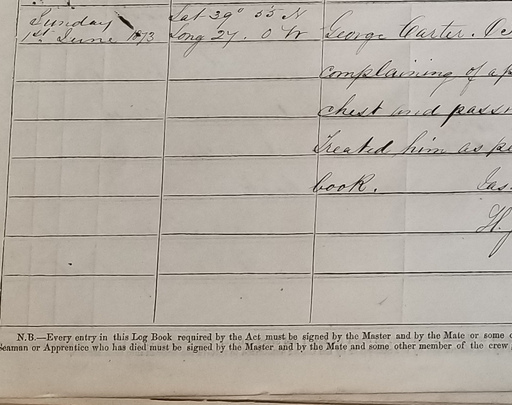 Sunday
1st June 1873
Lat 39° 55 N
Long 27. 0 W
George Carter.
complaining of a
chest and pass
Treated him as pe
book. Jas
H.
N.B.—Every entry in this Log Book required by the Act must be signed by the Master and by the Mate or some
Seaman or Apprentice who has died must be signed by the Master and by the Mate and some other member of the crew